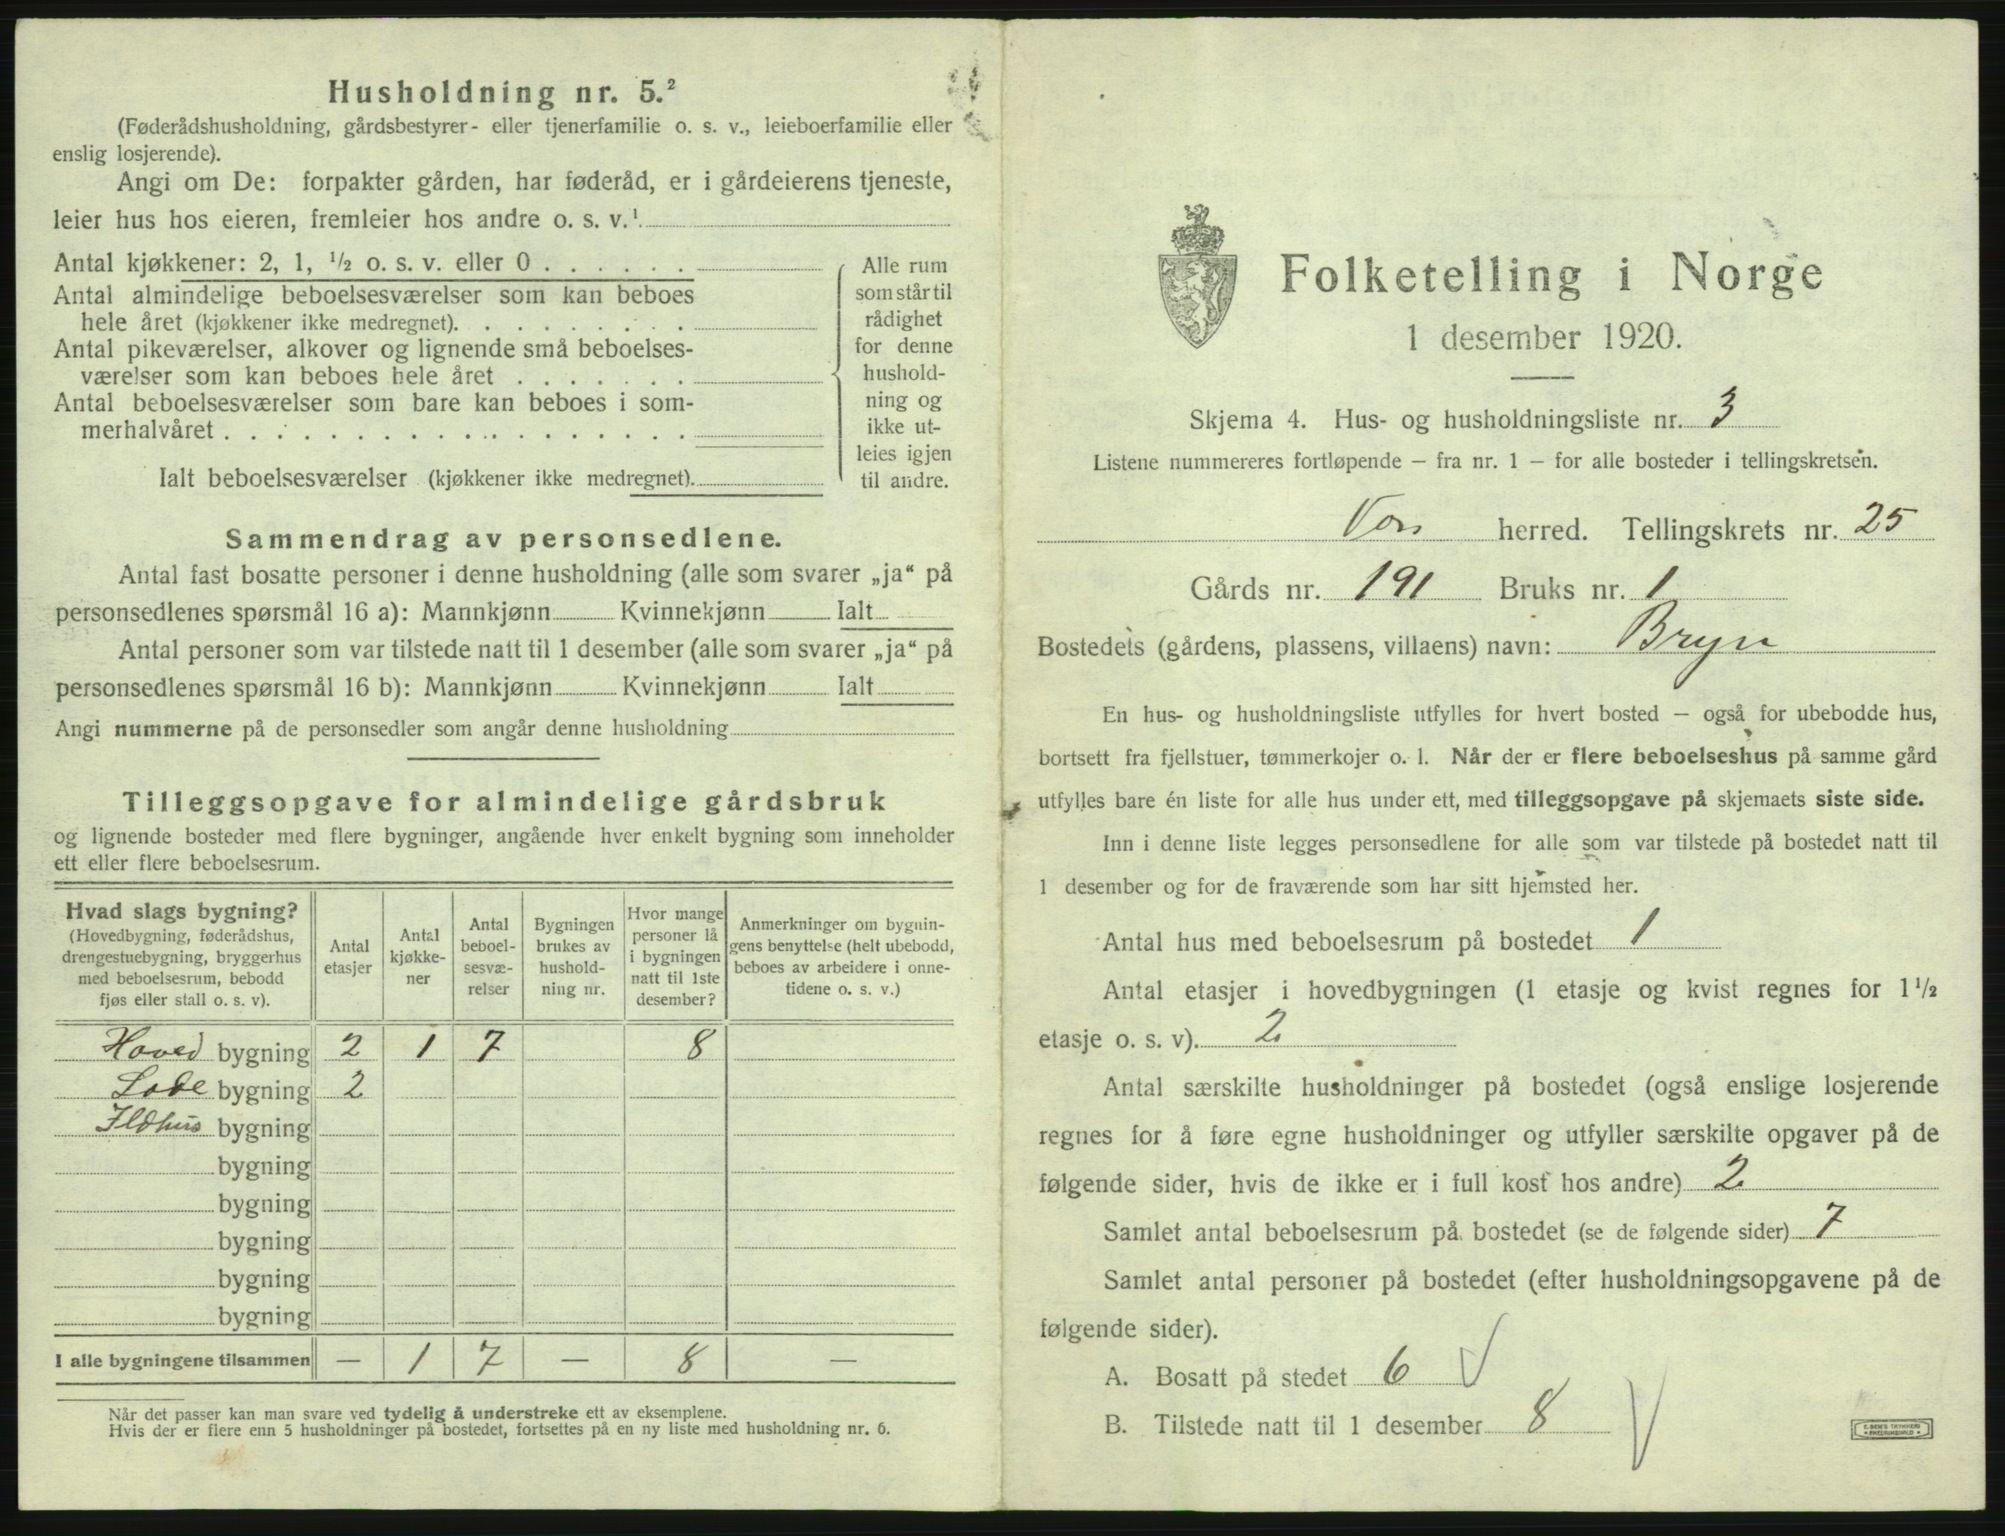 Husholdning nr. 5.²
(Føderådshusholdning, gårdsbestyrer- eller tjenerfamilie o. s. v., leieboerfamilie eller
enslig losjerende).
Angi om De: forpakter gården, har føderåd, er i gårdeierens tjeneste,
leier hus hos eieren, fremleier hos andre o. s. v.¹
Antal kjøkkener: 2, 1, ½ o. s. v. eller 0 . . . . . .
Antal almindelige beboelsesværelser som kan beboes
hele året (kjøkkener ikke medregnet). . . . . . . . .
Antal pikeværelser, alkover og lignende små beboelses-
værelser som kan beboes hele året . . . . . . .
Antal beboelsesværelser som bare kan beboes i som-
merhalvåret . . . . . . . . . . . . . . . . . .
Ialt beboelsesværelser (kjøkkener ikke medregnet).
Alle rum
som står til
rådighet
for denne
hushold-
ning og
ikke ut-
leies igjen
til andre.
Sammendrag av personsedlene.
Antal fast bosatte personer i denne husholdning (alle som svarer „ja“ på
personsedlenes spørsmål 16 a): Mannkjønn Kvinnekjønn Ialt
Antal personer som var tilstede natt til 1 desember (alle som svarer „ja“ på
personsedlenes spørsmål 16 b): Mannkjønn Kvinnekjønn Ialt
Angi nummerne på de personsedler som angår denne husholdning
Tilleggsopgave for almindelige gårdsbruk
og lignende bosteder med flere bygninger, angående hver enkelt bygning som inneholder
ett eller flere beboelsesrum.
Hvad slags bygning?
(Hovedbygning, føderådshus,
drengestuebygning, bryggerhus
med beboelsesrum, bebodd
fjøs eller stall o. s. v).
Antal
etasjer
Antal
kjøkke-
ner
Antal
beboel-
sesvæ-
relser
Bygningen
brukes av
hushold-
ning nr.
Hvor mange
personer lå
i bygningen
natt til 1ste
desember?
Anmerkninger om bygnin-
gens benyttelse (helt ubebodd,
beboes av arbeidere i onne-
tidene o. s. v.)
Hoved bygning 2 1 7 8
Lode bygning 2
Ildhus bygning
bygning
bygning
bygning
bygning
bygning
I alle bygningene tilsammen — 1 7 — 8 —
Når det passer kan man svare ved tydelig å understreke ett av eksemplene.
Hvis der er flere enn 5 husholdninger på bostedet, fortsettes på en ny liste med husholdning nr. 6.
Folketelling i Norge
1 desember 1920.
Skjema 4. Hus- og husholdningsliste nr. 3
Listene nummereres fortløpende – fra nr. 1 – for alle bosteder i tellingskretsen.
Voss herred. Tellingskrets nr. 25
Gårds nr. 191 Bruks nr. 1
Bostedets (gårdens, plassens, villaens) navn: Bryn
En hus- og husholdningsliste utfylles for hvert bosted – også for ubebodde hus,
bortsett fra fjellstuer, tømmerkojer o. l. Når der er flere beboelseshus på samme gård
utfylles bare én liste for alle hus under ett, med tilleggsopgave på skjemaets siste side.
Inn i denne liste legges personsedlene for alle som var tilstede på bostedet natt til
1 desember og for de fraværende som har sitt hjemsted her.
Antal hus med beboelsesrum på bostedet 1
Antal etasjer i hovedbygningen (1 etasje og kvist regnes for 1½
etasje o. s. v). 2
Antal særskilte husholdninger på bostedet (også enslige losjerende
regnes for å føre egne husholdninger og utfyller særskilte opgaver på de
følgende sider, hvis de ikke er i full kost hos andre) 2
Samlet antal beboelsesrum på bostedet (se de følgende sider) 7
Samlet antal personer på bostedet (efter husholdningsopgavene på de
følgende sider).
A. Bosatt på stedet 6
B. Tilstede natt til 1 desember 8